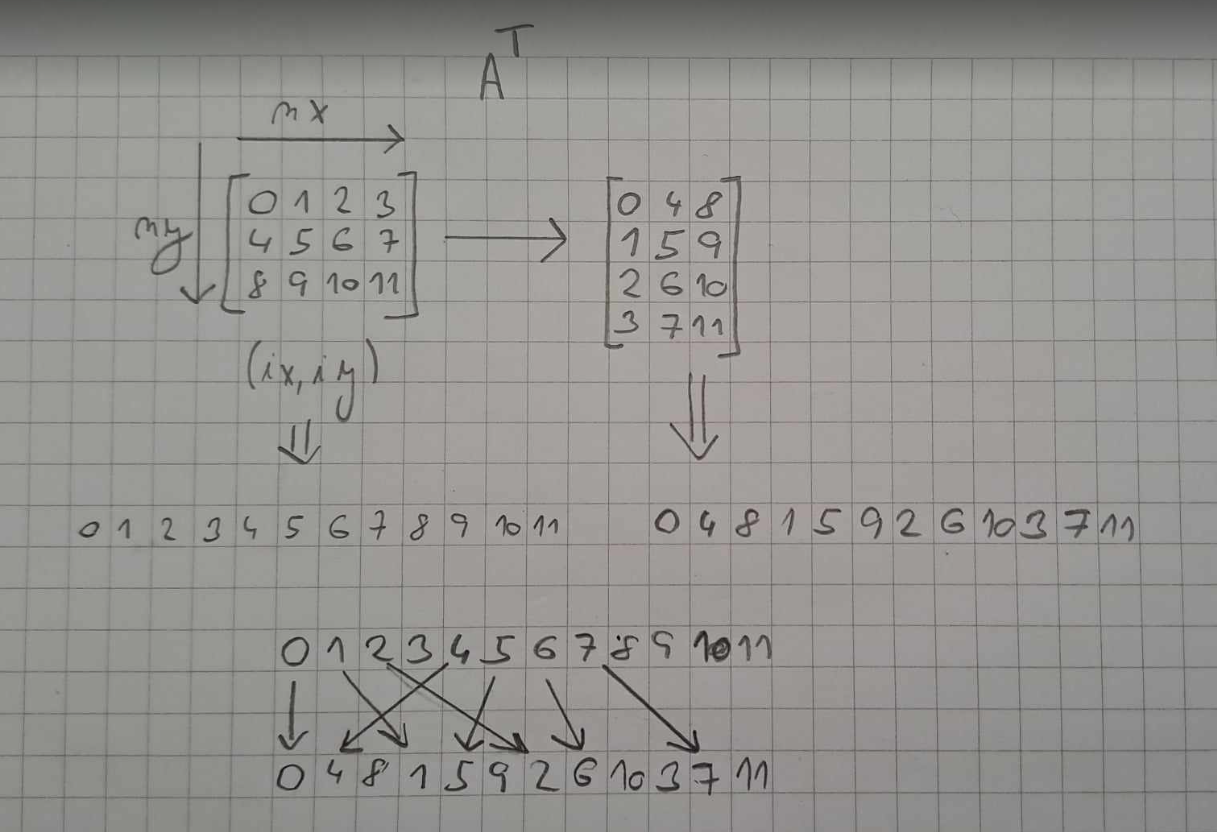 A^T
nx
ny
0 1 2 3
4 5 6 7
8 9 10 11
(ix, iy)
0 4 8
1 5 9
2 6 10
3 7 11
0 1 2 3 4 5 6 7 8 9 10 11
0 4 8 1 5 9 2 6 10 3 7 11
0 1 2 3 4 5 6 7 8 9 10 11
0 4 8 1 5 9 2 6 10 3 7 11